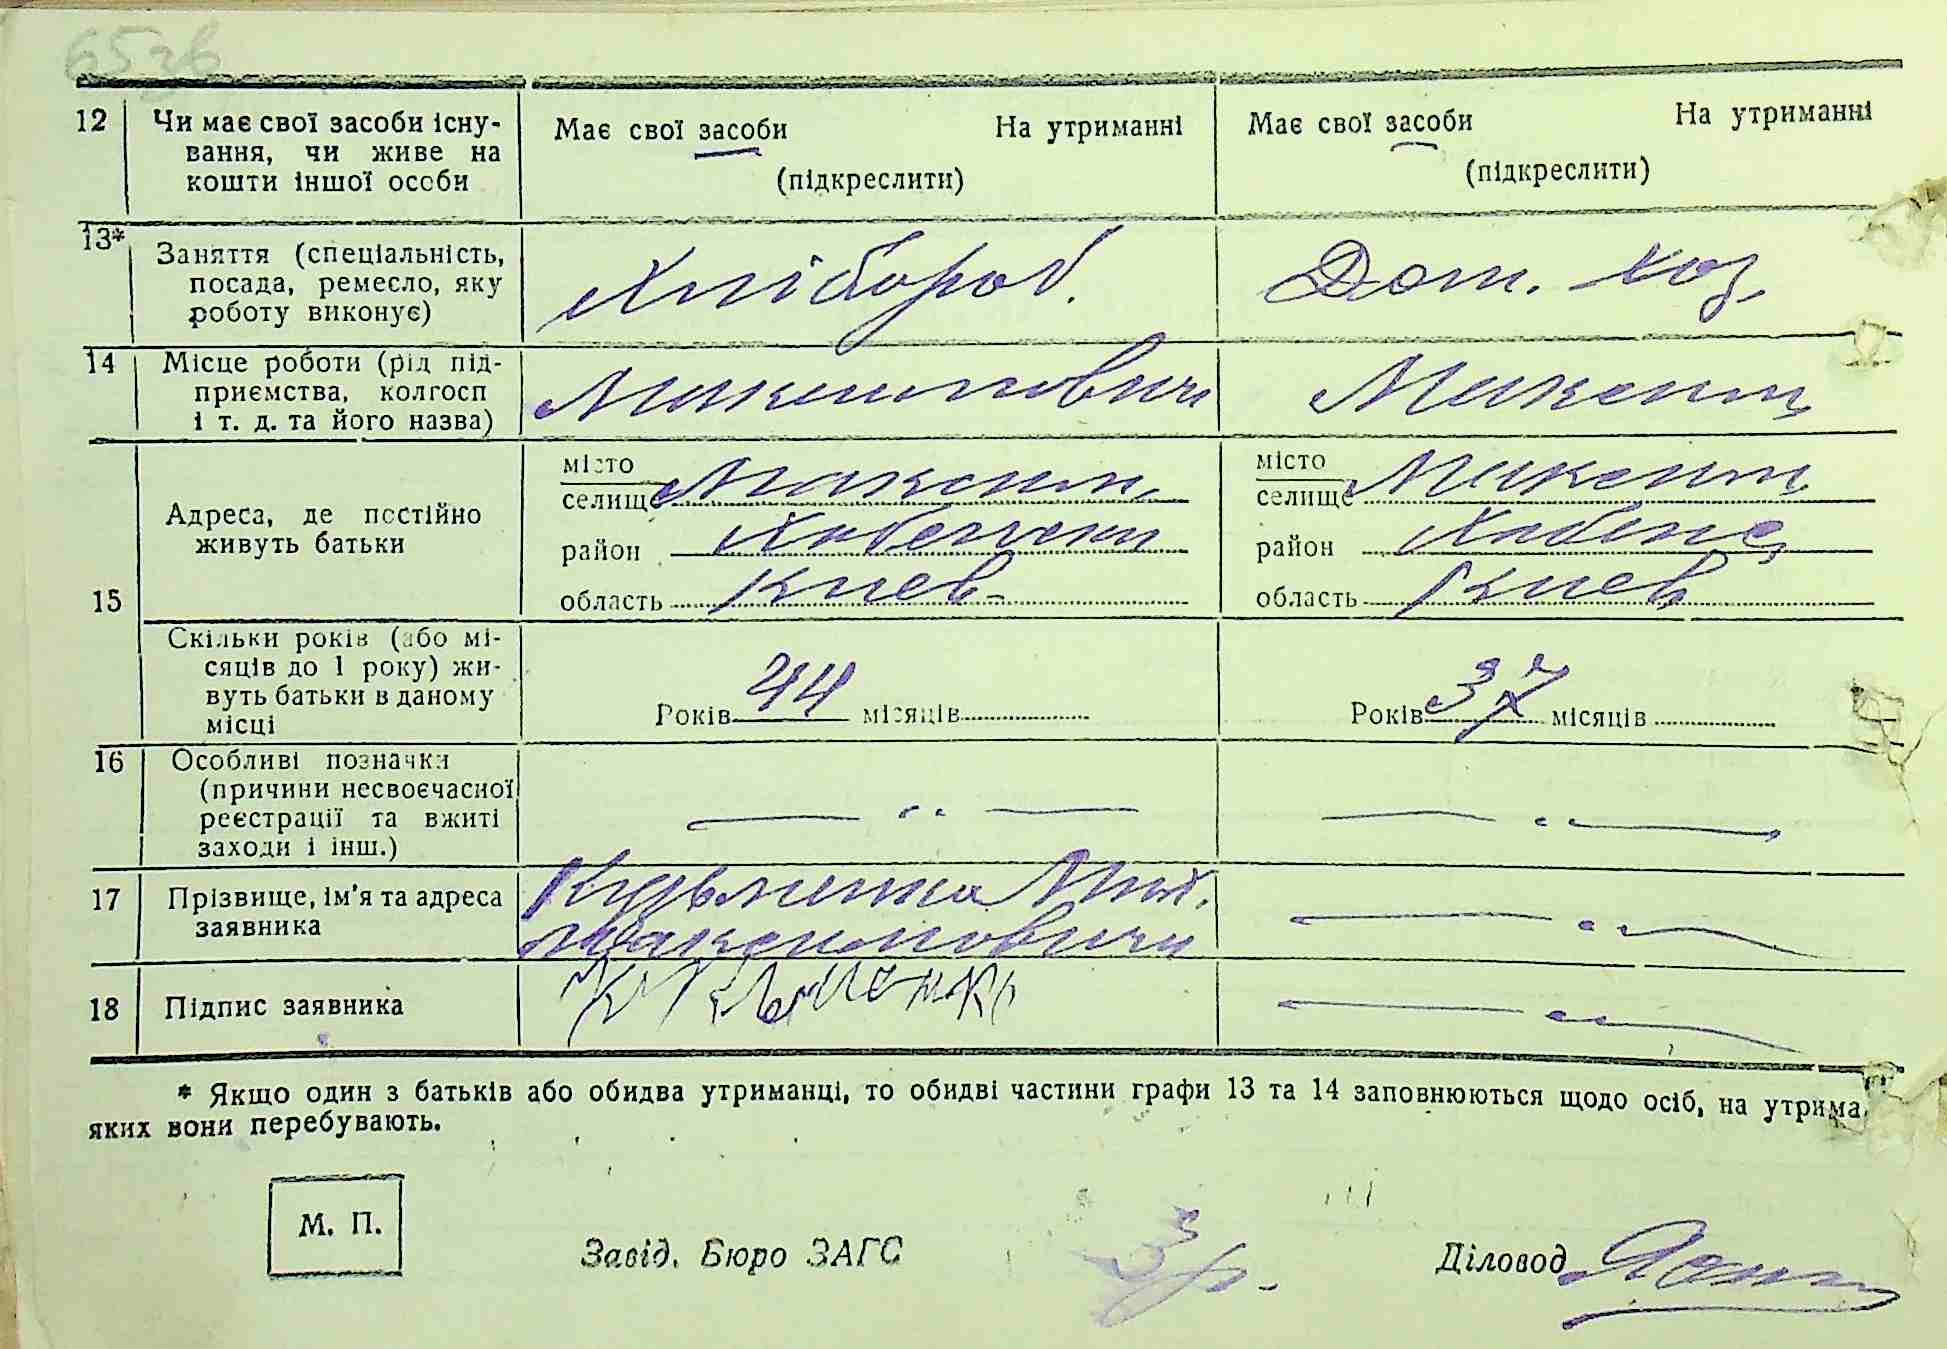 12 Чи має свої засоби існу-
вання, чи живе на
кошти іншої особи
Має свої засоби На утриманні
(підкреслити)
Має свої засоби На утриманні
(підкреслити)
13* Заняття (спеціальність,
посада, ремесло, яку
роботу виконує)
Хлібороб.
Дом. хоз.
14 Місце роботи (рід під-
приємства, колгосп
і т. д. та його назва)
Максимовичи
Максим
15
Адреса, де постійно
живуть батьки
місто
селище Максим.
район
область Киев.
місто
селище Максим
район
область Киев
Скільки років (або мі-
сяців до 1 року) жи-
вуть батьки в даному
місці
Років 44 місяців
Років 37 місяців
16 Особливі позначки
(причини несвоєчасної
реєстрації та вжиті
заходи і інш.)
17 Прізвище, ім'я та адреса
заявника
Кузьменко Мих.
Максимовичи
18 Підпис заявника
Кузьменко
* Якщо один з батьків або обидва утриманці, то обидві частини графи 13 та 14 заповнюються щодо осіб, на утрима
яких вони перебувають.
М. П.
Завід. Бюро ЗАГС
Діловод